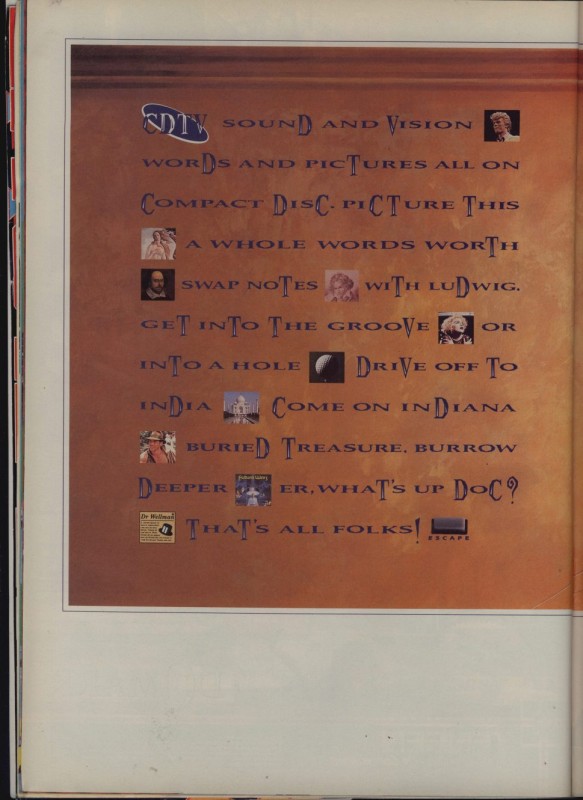 CDTV SOUND AND VISION
WORDS AND PICTURES ALL ON
COMPACT DISC. PICTURE THIS
A WHOLE WORDS WORTH
SWAP NOTES WITH LUDWIG.
GET INTO THE GROOVE OR
INTO A HOLE DRIVE OFF TO
INDIA COME ON INDIANA
BURIED TREASURE. BURROW
DEEPER ER, WHAT'S UP DOC?
Dr Wellman
THAT'S ALL FOLKS!
ESCAPE